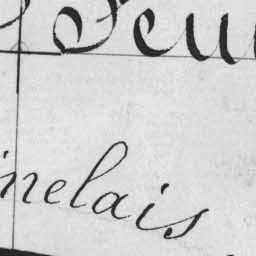 Feu
inelais